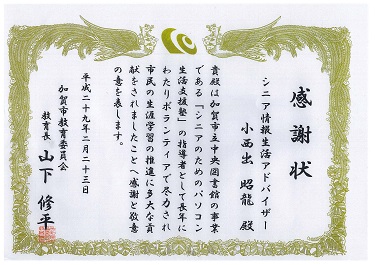 感謝状
シニア情報生活アドバイザー
小西出 昭龍 殿
貴殿は加賀市立中央図書館の事業
である「シニアのためのパソコン
生活支援塾」の指導者として長年に
わたりボランティアで尽力され
市民の生涯学習の推進に多大な貢
献をされましたことへ感謝と敬意
の意を表します。
平成二十九年二月二十三日
加賀市教育委員会
教育長 山下 修平